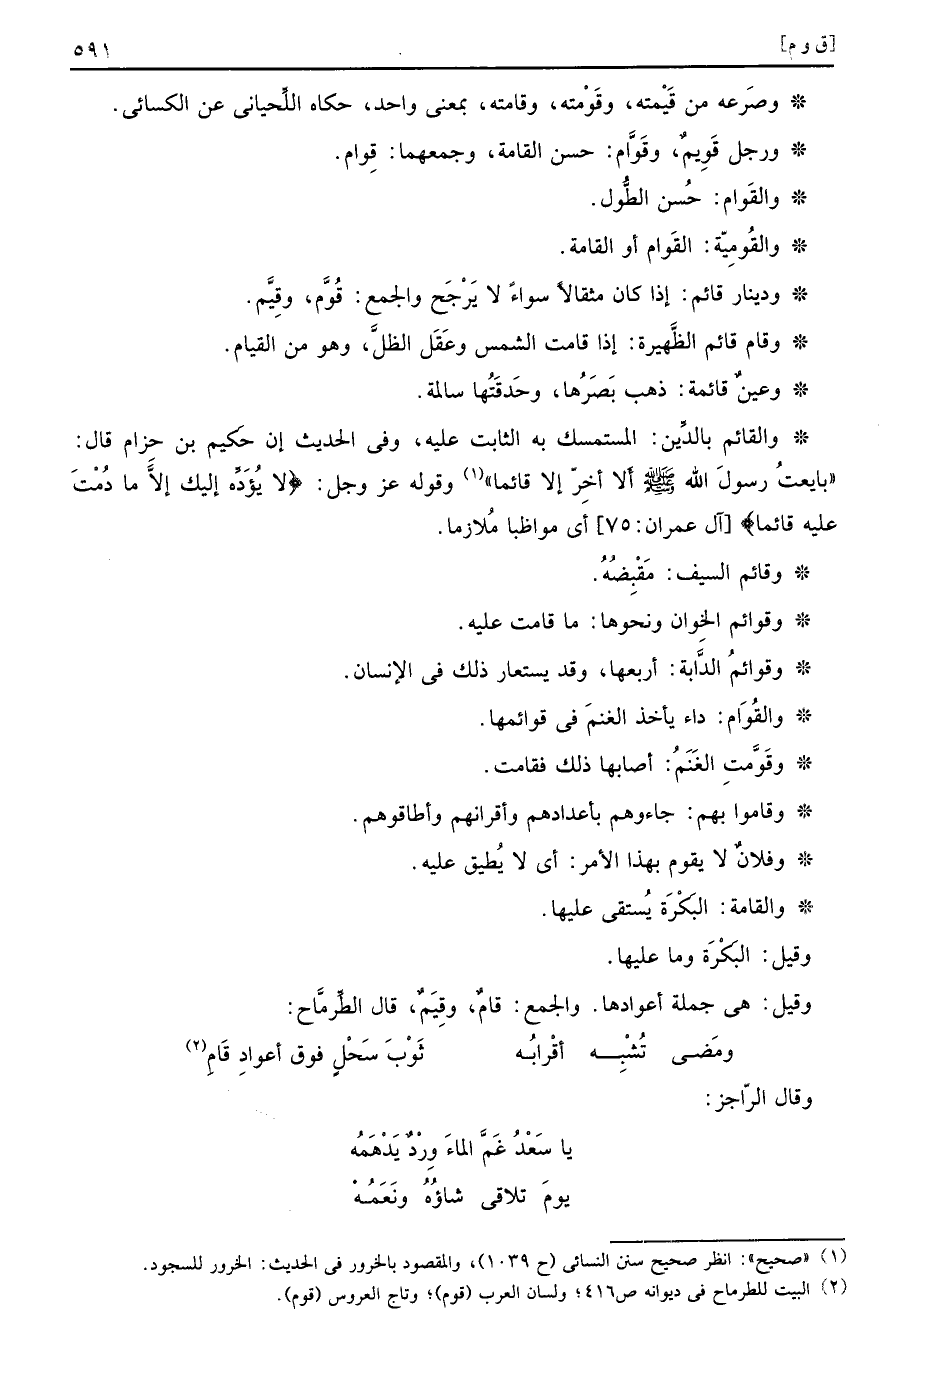 [ق و م] ٥٩١
* وصَرعه من قَيْمته، وقَوْمته، وقامته، بمعنى واحد، حكاه اللِّحيانى عن الكسائى.
* ورجل قَوِيمٌ، وقَوَّام: حسن القامة، وجمعهما: قِوام.
* والقَوام: حُسن الطُّول.
* والقُومِيّة: القَوام أو القامة.
* ودينار قائم: إذا كان مثقالاً سواءً لا يَرْجَح والجمع: قُوَّم، وقِيَّم.
* وقام قائم الظَّهيرة: إذا قامت الشمس وعَقَل الظلَّ، وهو من القيام.
* وعينٌ قائمة: ذهب بَصَرُها، وحَدقَتُها سالمة.
* والقائم بالدِّين: المستمسك به الثابت عليه، وفى الحديث إن حكيم بن حِزام قال:
«بايعتُ رسولَ الله ﷺ ألا أخِرّ إلا قائما»(١) وقوله عز وجل: ﴿لا يُؤَدِّه إليك إلاَّ ما دُمْتَ
عليه قائما﴾ [آل عمران: ٧٥] أى مواظبا مُلازما.
* وقائم السيف: مَقْبِضُهُ.
* وقوائم الخِوان ونحوها: ما قامت عليه.
* وقوائمُ الدَّابة: أربعها، وقد يستعار ذلك فى الإنسان.
* والقُوَام: داء يأخذ الغنمَ فى قوائمها.
* وقَوَّمتِ الغَنَمُ: أصابها ذلك فقامت.
* وقاموا بهم: جاءوهم بأعدادهم وأقرانهم وأطاقوهم.
* وفلانٌ لا يقوم بهذا الأمر: أى لا يُطيق عليه.
* والقامة: البَكْرَة يُستقى عليها.
وقيل: البَكْرَة وما عليها.
وقيل: هى جملة أعوادها. والجمع: قامٌ، وقِيَمٌ، قال الطِّرمَّاح:
ومَضى تُشْبِه أقْرابُه ثَوْبَ سَحْلٍ فوق أعوادِ قَامِ(٢)
وقال الرّاجز:
يا سَعْدُ غَمَّ الماءَ وِرْدٌ يَدْهَمُه
يومَ تلاقى شاؤُهُ ونَعَمُهْ
(١) «صحيح»: انظر صحيح سنن النسائى (ح ١٠٣٩)، والمقصود بالخرور فى الحديث: الخرور للسجود.
(٢) البيت للطرماح فى ديوانه ص٤١٦؛ ولسان العرب (قوم)؛ وتاج العروس (قوم).